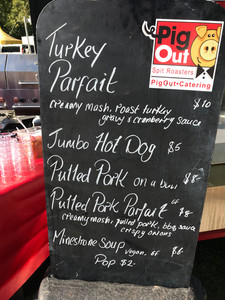 Pig
Out
Spit Roasters
PigOut•Catering
Turkey
Parfait
$10
creamy mash, roast turkey
gravy & cranberry sauce
Jumbo Hot Dog $5
Pulled Pork on a bun $8
Pulled Pork Parfait GF $8
creamy mash, pulled pork, bbq sauce
crispy onions
Minestrone Soup Vegan, GF $6
Pop $2